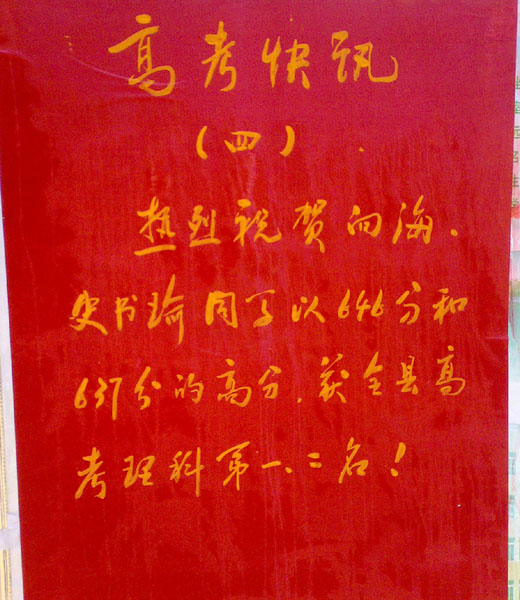 高考快讯
(四)
热烈祝贺向海、
史书瑜同学以646分和
637分的高分,获全县高
考理科第一、二名!